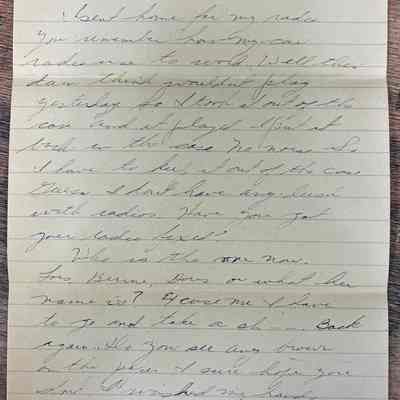 I sent home for my radio
You remember how my car
radio use to work. Well this
darn thing wouldn't play
yesterday so I took it out of the
case and it played. I put it
back in the case no more. So
I have to keep it out of the case
Guess I don't have any luck
with radios. Have you got
your radio fixed?
Who is the one now.
Lois, Bernie, Doris or what her
name is? Excuse me I have
to go and take a sh---. Back
again. Do you see any brown
on the paper I sure hope you
don't I washed my hands